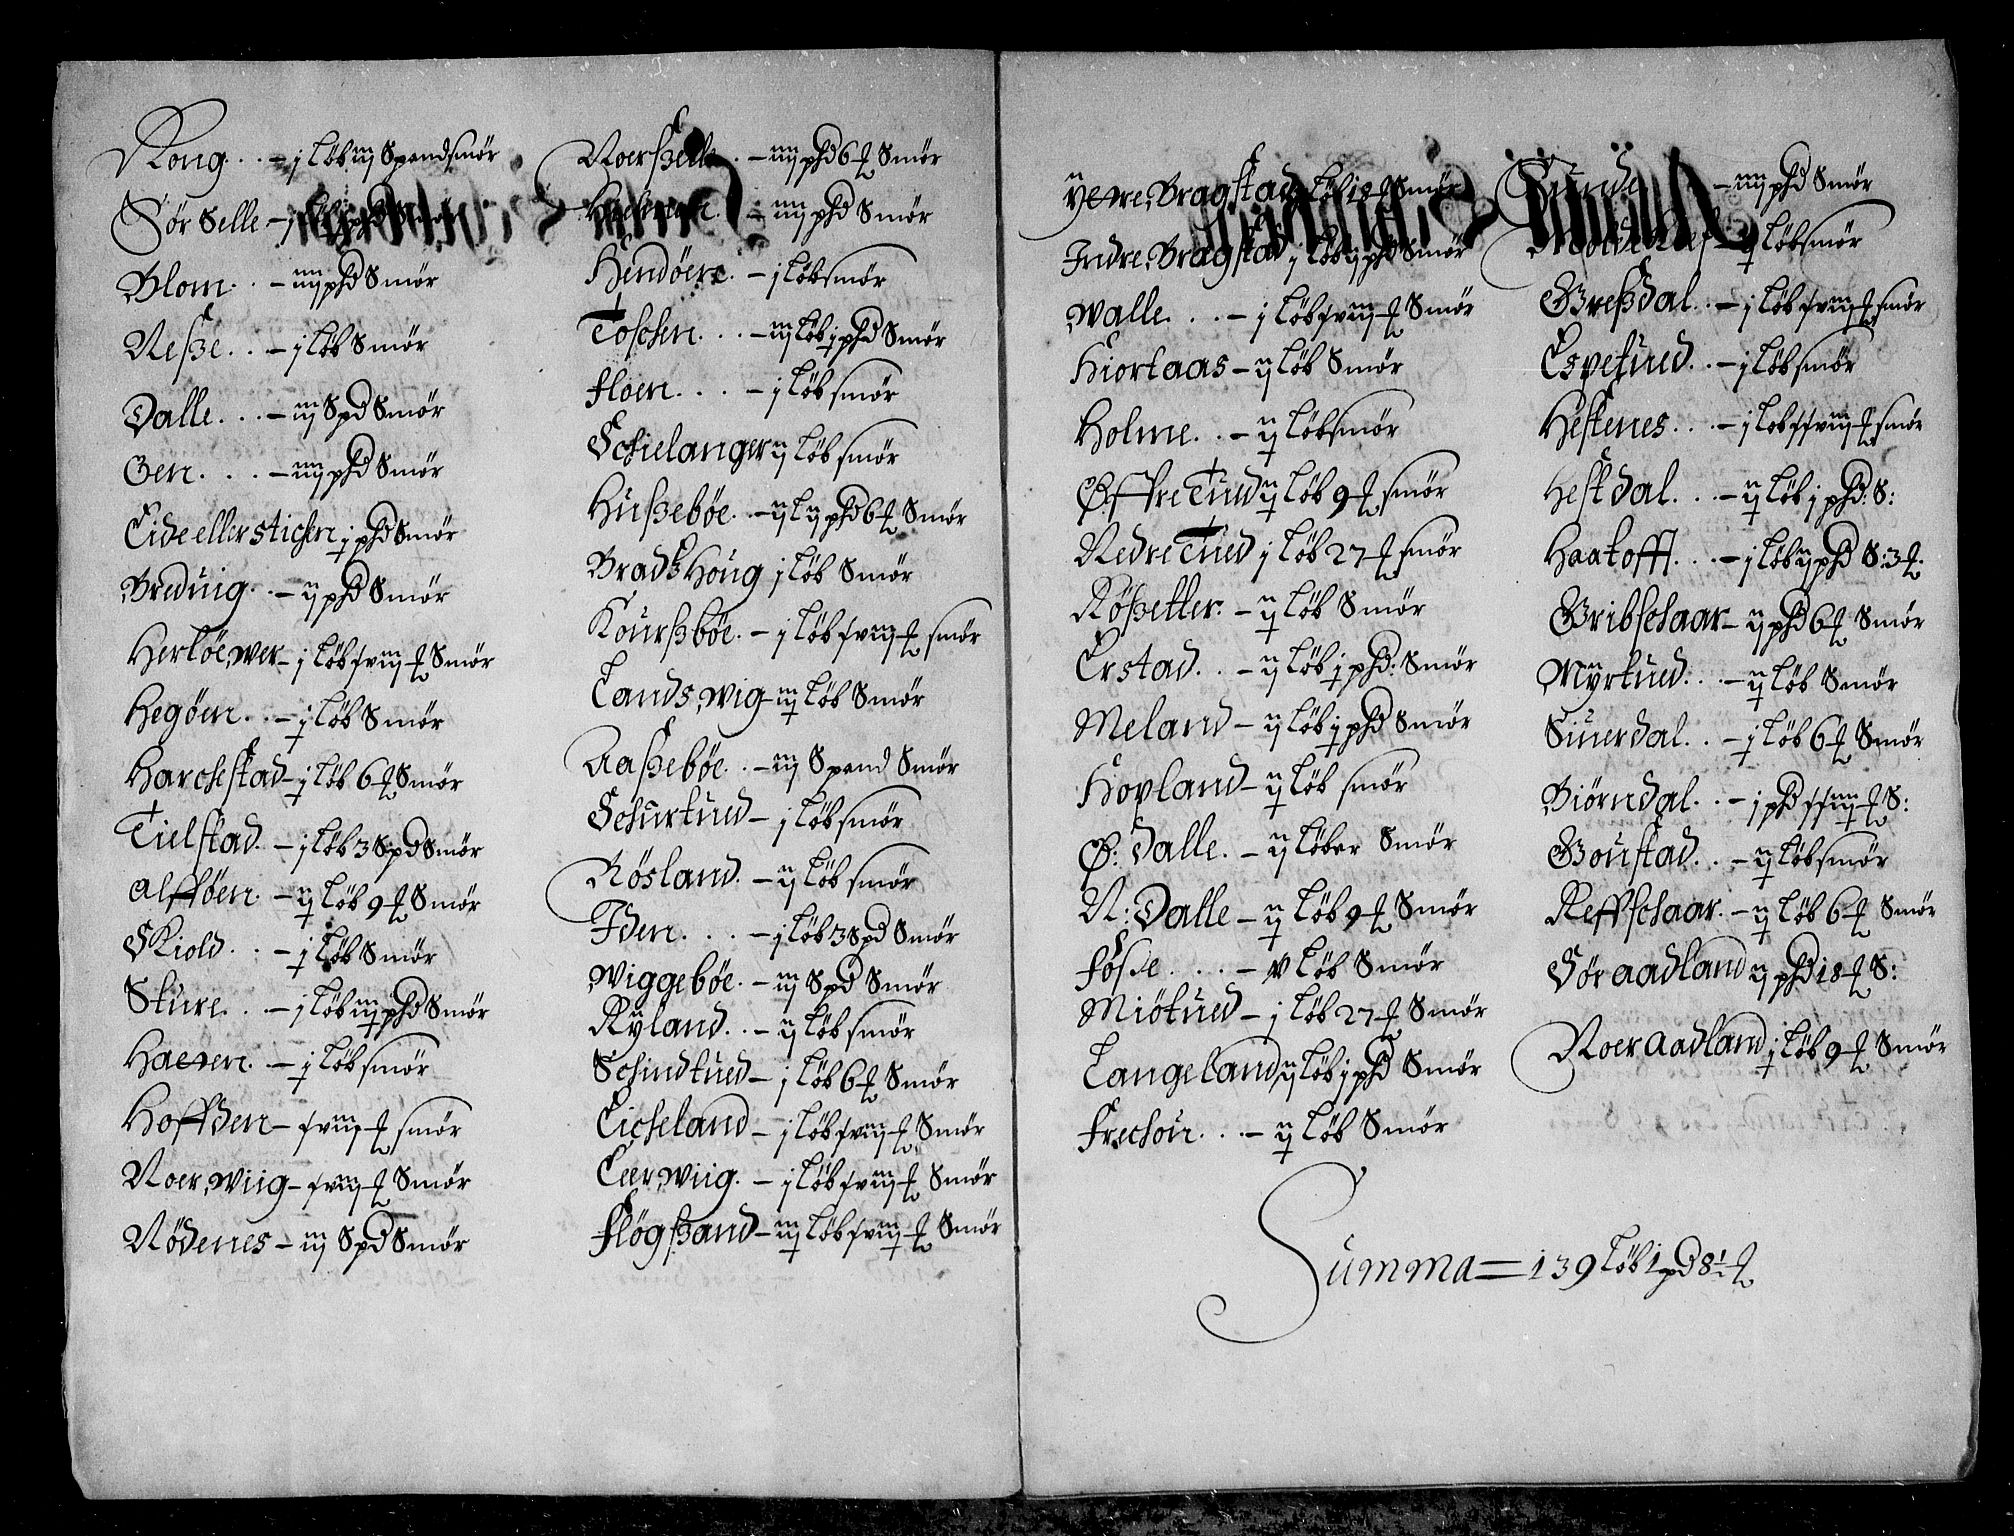 Kong. . . – j Løb iij Spandsmør
Sør Selle –
Blom. . – iiij phd Smør
Neße. . – j løb Smør
Dalle. . . – iij Spd Smør
Oen. . . . – iiij phd Smør
Eide eller Stichen j phd Smør
Breduig. . – ij phd Smør
Herløe,wer – j Løb xviij ℔ Smør
Hegøen. . – j Løb Smør
Harchestad – j løb 6 ℔ Smør
Tielstad. – j løb 3 Spd Smør
Alfföen. – ij Løb 9 ℔ Smør
Skiold. . – j Løb Smør
Sture. . . – j løb iij phd Smør
Haeren. – j Løb smør
Hoffden – xviij ℔ smør
Noer,wiig – xviij ℔ Smør
Nödenes – iij Spd Smør
Noerßelle. – iiij phd 6 ℔ Smør
– iiij phd Smør
Hendøen. – j Løbsmør
Toschen. . . – iij Løb j phd Smør
Floen. . . . – j Løb smør
Schielanger ij Løb smør
Hußebøe. – ij L ij phd 6 ℔ Smør
Bradtz Houg j Løb Smør
Kourßbøe. – j Løb xviij ℔ smør
Lands,wig – iij Løb Smør
Aaßebøe. . – iij Spand Smør
Schurtued – j Løb smør
Røsland. – ij Løb smør
Iden. . . . – j Løb 3 Spd Smør
Wiggebøe. – iij Spd Smør
Rÿland. . – ij Løb smør
Schindtued – j Løb 6 ℔ Smør
Eicheland – j Løb xviij ℔ Smør
Leer,wiig. – j Løb xviij ℔ Smør
Fløgßand – iij Løb xviij ℔ Smør
Ytre,Bragstad Løb 18 ℔ Smør
Indre,Bragstad j Løb ij phd Smør
Walle. . . – j Løb xviij ℔ Smør
Hiortaas – ij løb Smør
Holme. . – ij Løbsmør
Øffre Tued ij Løb 9 ℔ smør
Nedre Tued j Løb 27 ℔ smør
Rößetter. – ij Løb Smør
Erstad. . – ij Løb j phd: Smør
Meland – ij Løb j phd Smør
Hopland – ij Løb smør
Ø: Dalle. – ij Løber Smør
N: Dalle – ij Løb 9 ℔ Smør
Foße. . . . – v Løb Smør
Miötued – j Løb 27 ℔ Smør
Langeland ij Løb j phd Smør
Frechou. . . – ij Løb Smør
– iiij phd Smør
– ij Løbsmør
Greßdal. . – j Løb xviij ℔ smør
Espetued. . – j Løb smør
Hestenes. . . – j Løb xxviij ℔ smør
Hestdal. . . – ij Løb j phd: S:
Haatofft. . . – j Løb ij phd S: 3 ℔.
Gribschaar – ij phd 6 ℔ Smør
Myrtued. . – ij Løb Smør
Siuerdal. . – j Løb 6 ℔ Smør
Biørndal. . – j phd xxiiij ℔ S:
Goustad. . – ij Løbsmør
Reffschaar. – ij Løb 6 ℔ Smør
Søraadland ij phd 18 ℔ S:
Noeraadland j Løb 9 ℔ Smør
Summa = 139 Løb 1 pd 8½ ℔